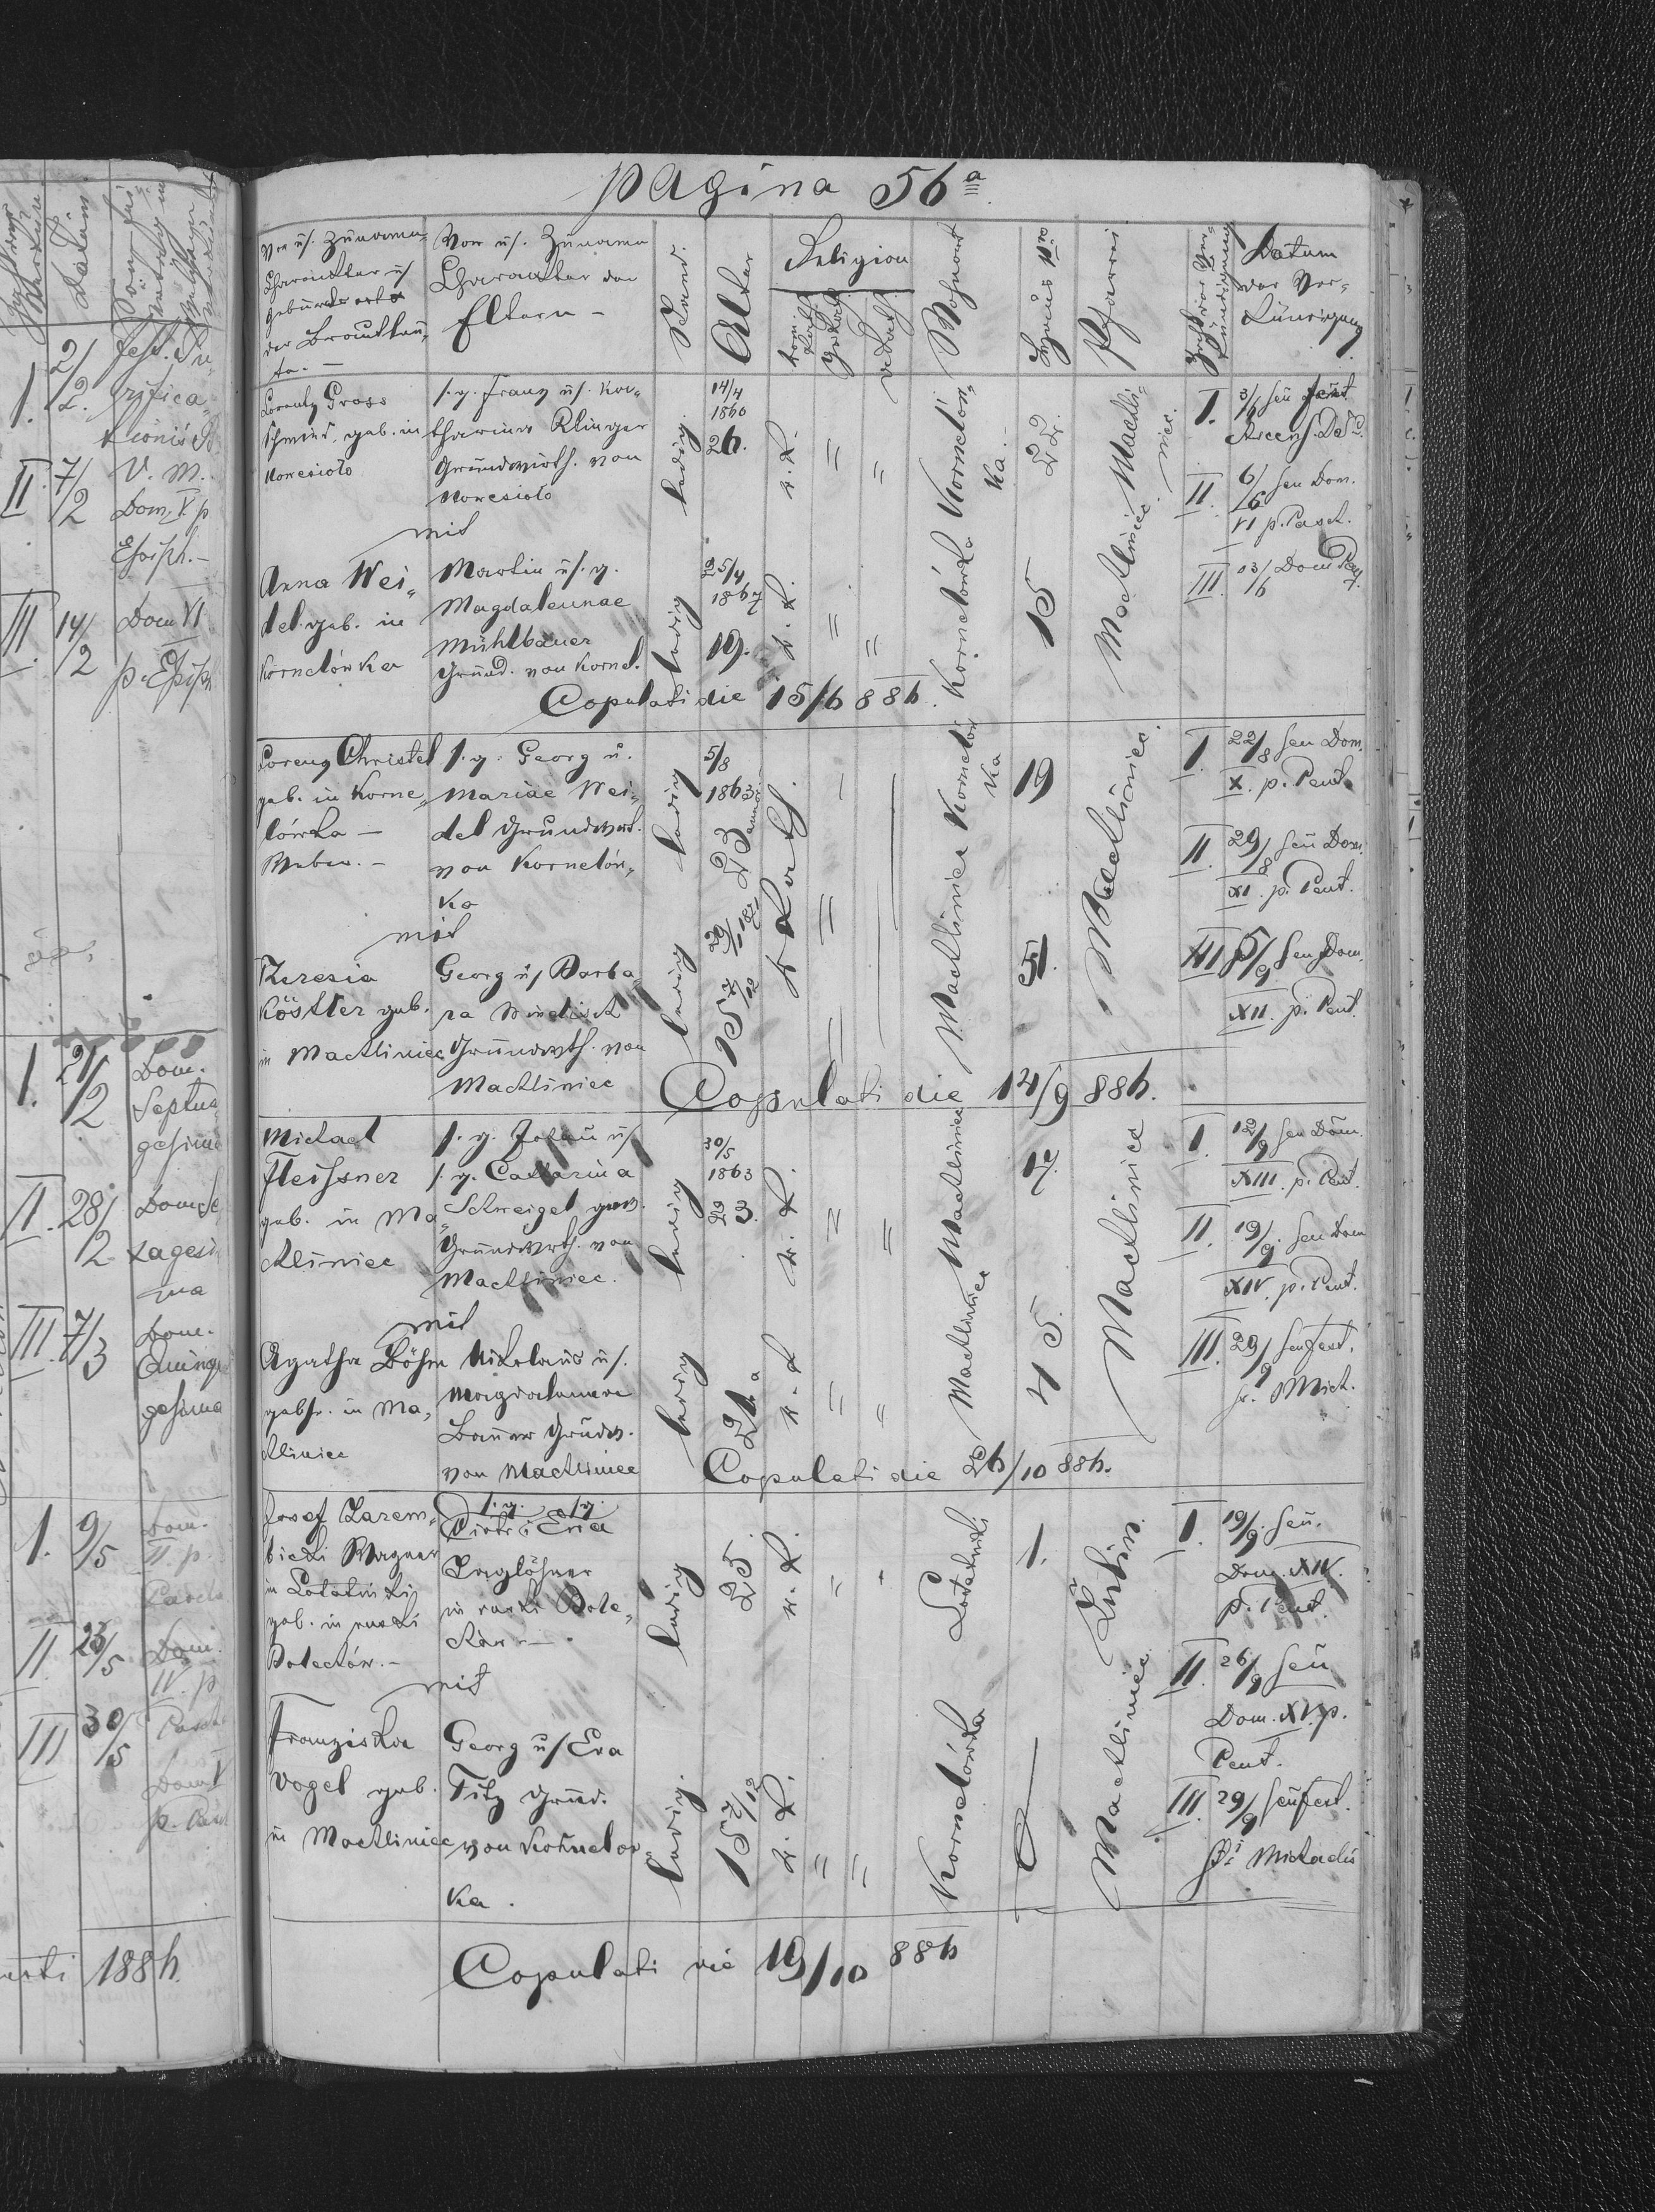 pagina 56a
Vor u. Zuname,
Charakter u.
Geburtsort
der Brautleu-
te.
Vor u. Zuname
Charakter der
Eltern
Stand.
Alter
Religion
Wohnort
Haus Nro
Pfarrei
Datum
der Ver-
kündigung
Lorenz Gross
Schmied, geb. in
Nowesioło
s. g. Franz u. Ka-
tharina Klinger
Grundwirth. von
Nowesioło
ledig
14/4
1860
26.
r. k.
Kornelów-
ka.
22.
Machli-
niec.
I. 3/6 seu Fest.
Ascens. Dni.
II. 6/6 seu Dom.
VI p. Pasch.
III. 13/6 Dom Pent.
mit
Anna Wei-
del geb. in
Kornelówka
Martin u. g.
Magdalennae
Mühlbauer
Grund. von Kornel.
ledig
25/4
1867
19.
r. k.
Kornelówka
15
Machliniec
Copulati die 15/6 886
Lorenz Christel
geb. in Korne-
lówka –
Weber. –
s. g. Georg u.
Mariae Wei-
del Grundwirt.
von Kornelów-
ka
ledig
5/8
1863
23
r. kath.
Kornelów
ka
19
Machliniec.
I. 22/8 seu Dom.
X. p. Pent.
II. 29/8 seu Dom.
XI. p. Pent.
III 5/9 seu Dom.
XII. p. Pent.
mit
Theresia
Köstler geb.
in Machliniec
Georg u. Barba-
ra Windisch
Grundwrth. von
Machliniec
ledig
29/1 1871
15 7/12
Machliniec
51.
Copulati die 14/9 886.
Michael
Fleissner
geb. in Ma-
chliniec
s. g. Johan u.
s. g. Catharina
Schweigel gew.
Grundwrth. von
Machliniec.
ledig
30/5
1863
23.
r. k.
Machliniec
17.
Machliniec
I. 12/9 seu Dom.
XIII. p. Pent.
II. 19/9. seu Dom
XIV. p. Pent.
III. 29/9 seu Fest.
S. Mich.
mit
Agatha Böhm
gebr. in Ma-
chliniec
Nikolaus u.
Magdalenae
Bauer Grudw.
von Machliniec
ledig
21 a
r. k
Machliniec
45.
Copulati die 26/10 886.
Josef Zarem-
bicki Wagner
in Lotatniki
geb. in ruski
Bolechów. –
s. g. s. g.
Piotr & Eva
Taglöhner
in ruski Bole-
chów –
ledig
25.
r. k.
Lotatniki
1.
Lubin.
I. 19/9. seu.
Dom. XIV.
p. Pent.
II 26/9 seu
Dom. XV. p.
Pent.
III. 29/9 seu Fest.
Sti Michaelis
mit
Franziska
Vogel geb.
in Machliniec
Georg u. Eva
Titz Grud.
von Kornelow-
ka.
ledig.
15 7/12
r. k.
Kornelówka
Machliniec
Copulati die 19/10 886
Datum
1. 2/2. Fest. Pu-
rifica-
tionis B.
V. M.
II. 7/2 Dom. V. p
Epiph. –
III. 14/2 Dom VI
p. Epiph
1. 21/2 Dom.
Septua
gesima
II. 28/2 Dom. Se
xagesi
ma
III. 7/3 Dom.
Quinqua
gesima
1. 9/5 Dom.
II. p.
Pascha
II 23/5 Dom.
IV. p
Pascha
III 30/5 Dom V
p. Pasch
1886.